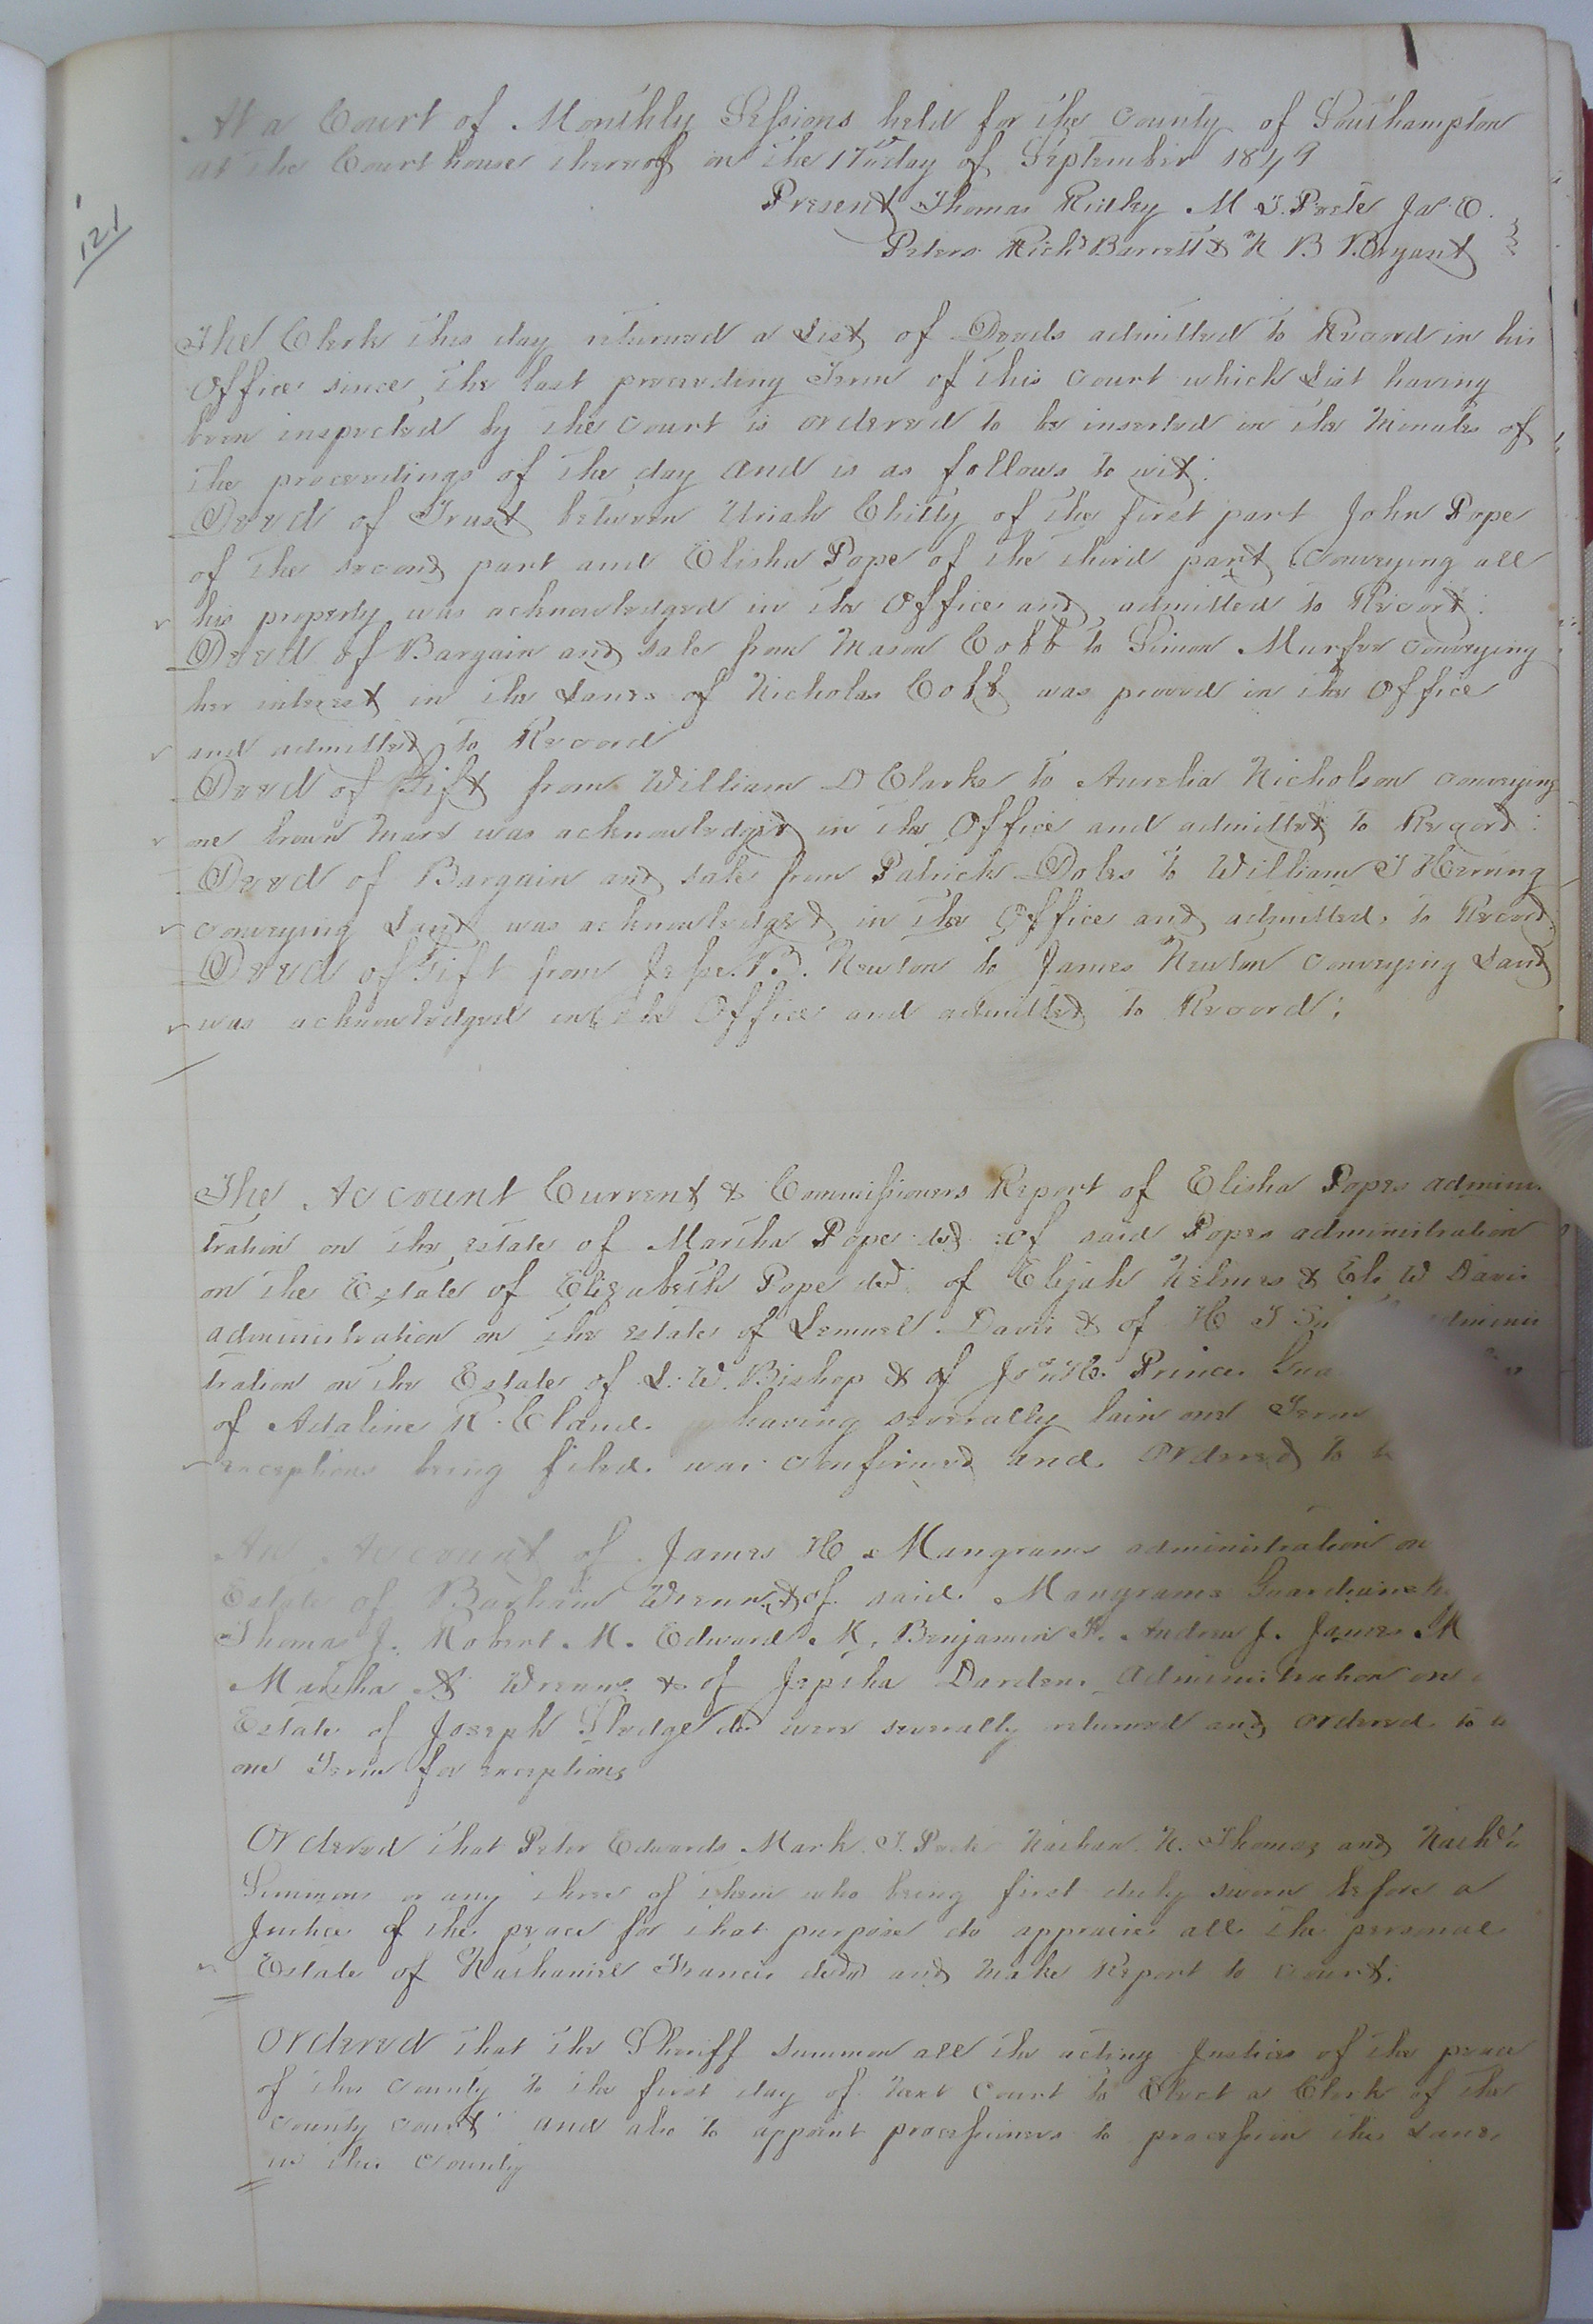 121
At a Court of Monthly Sessions held for the County of Southampton
at the Courthouse thereof on the 17th day of September 1849
Present Thomas Ridley M T. Peete Jas. C.
Peters Richd Barrett & N B Bryant
The Clerk this day returned a List of Deeds admitted to Record in his
Office since the last preceeding Term of this Court which List having
been inspected by the Court is ordered to be inserted in the Minutes of
the proceedings of the day and is as follows to wit:
Deed of Trust between Uriah Chitty of the first part John Pope
of the second part and Elisha Pope of the third part Conveying all
his property was acknowledged in the Office and admitted to Record:
Deed of Bargain and sale from Mason Cobb to Simon Murfee conveying
her interest in the Lands of Nicholas Cobb was proved in the Office
and admitted to Record
Deed of Gift from William D Clarke to Aurelia Nicholson conveying
one brown Mare was acknowledged in the Office and admitted to Record:
Deed of Bargain and sale from Patrick Doles to William J Herring
conveying Land was acknowledged in the Office and admitted to Record:
Deed of Gift from Jesse B. Newton to James Newton conveying Land
was acknowledged in the Office and admitted to Record;
The Account Current & Commissioners Report of Elisha Popes adminis
tration on the estate of Martha Pope decd of said Popes administration
on the Estate of Elizabeth Pope decd of Elijah Helmes & Eli W Davis
administration on the estate of Lemuel Davis & of H T
tration on the Estate of L. W. Bishop & of Prince
of Adaline R. Eland having severally lain one Term
exceptions being filed was confirmed and ordered to
An Account of James H Mangrams administration on
Estate of Barham Wrenn & of said Mangrams Guardianship
Thomas J. Robert M. Edward M, Benjamin F. Andrew J. James M
Martha A Wrenn & of Jeptha Darden administration on
Estate of Joseph Sledge decd were severally returned and ordered to
one Term for exceptions
Ordered that Peter Edwards Mark T. Peete Nathan N. Thomas and
Simmons or any three of them who being first duly sworn before a
Justice of the peace for that purpose do appraise all the personal
Estate of Nathaniel Francis decd and make Report to Court.
Ordered that the Sheriff summon all the acting Justices of the peace
of this County to the first day of next Court to elect a Clerk of the
County court and also to appoint processioners to procession the Lands
in this County